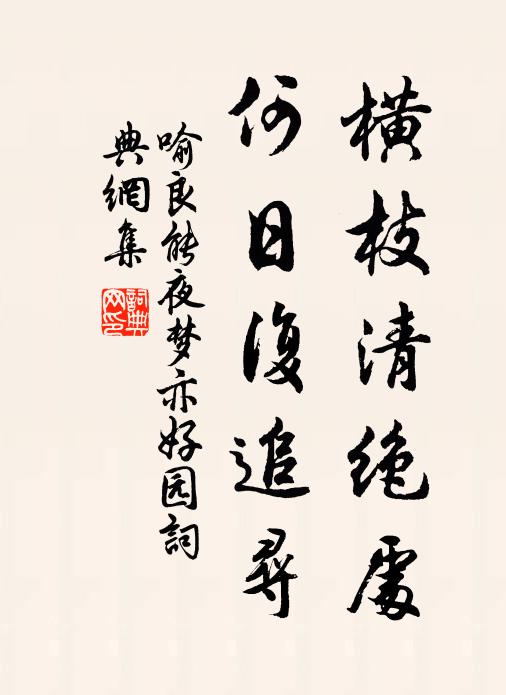 橫枝清絶處
何日復追尋
喻良能夜梦亦好园詞
典網集
詞典網印